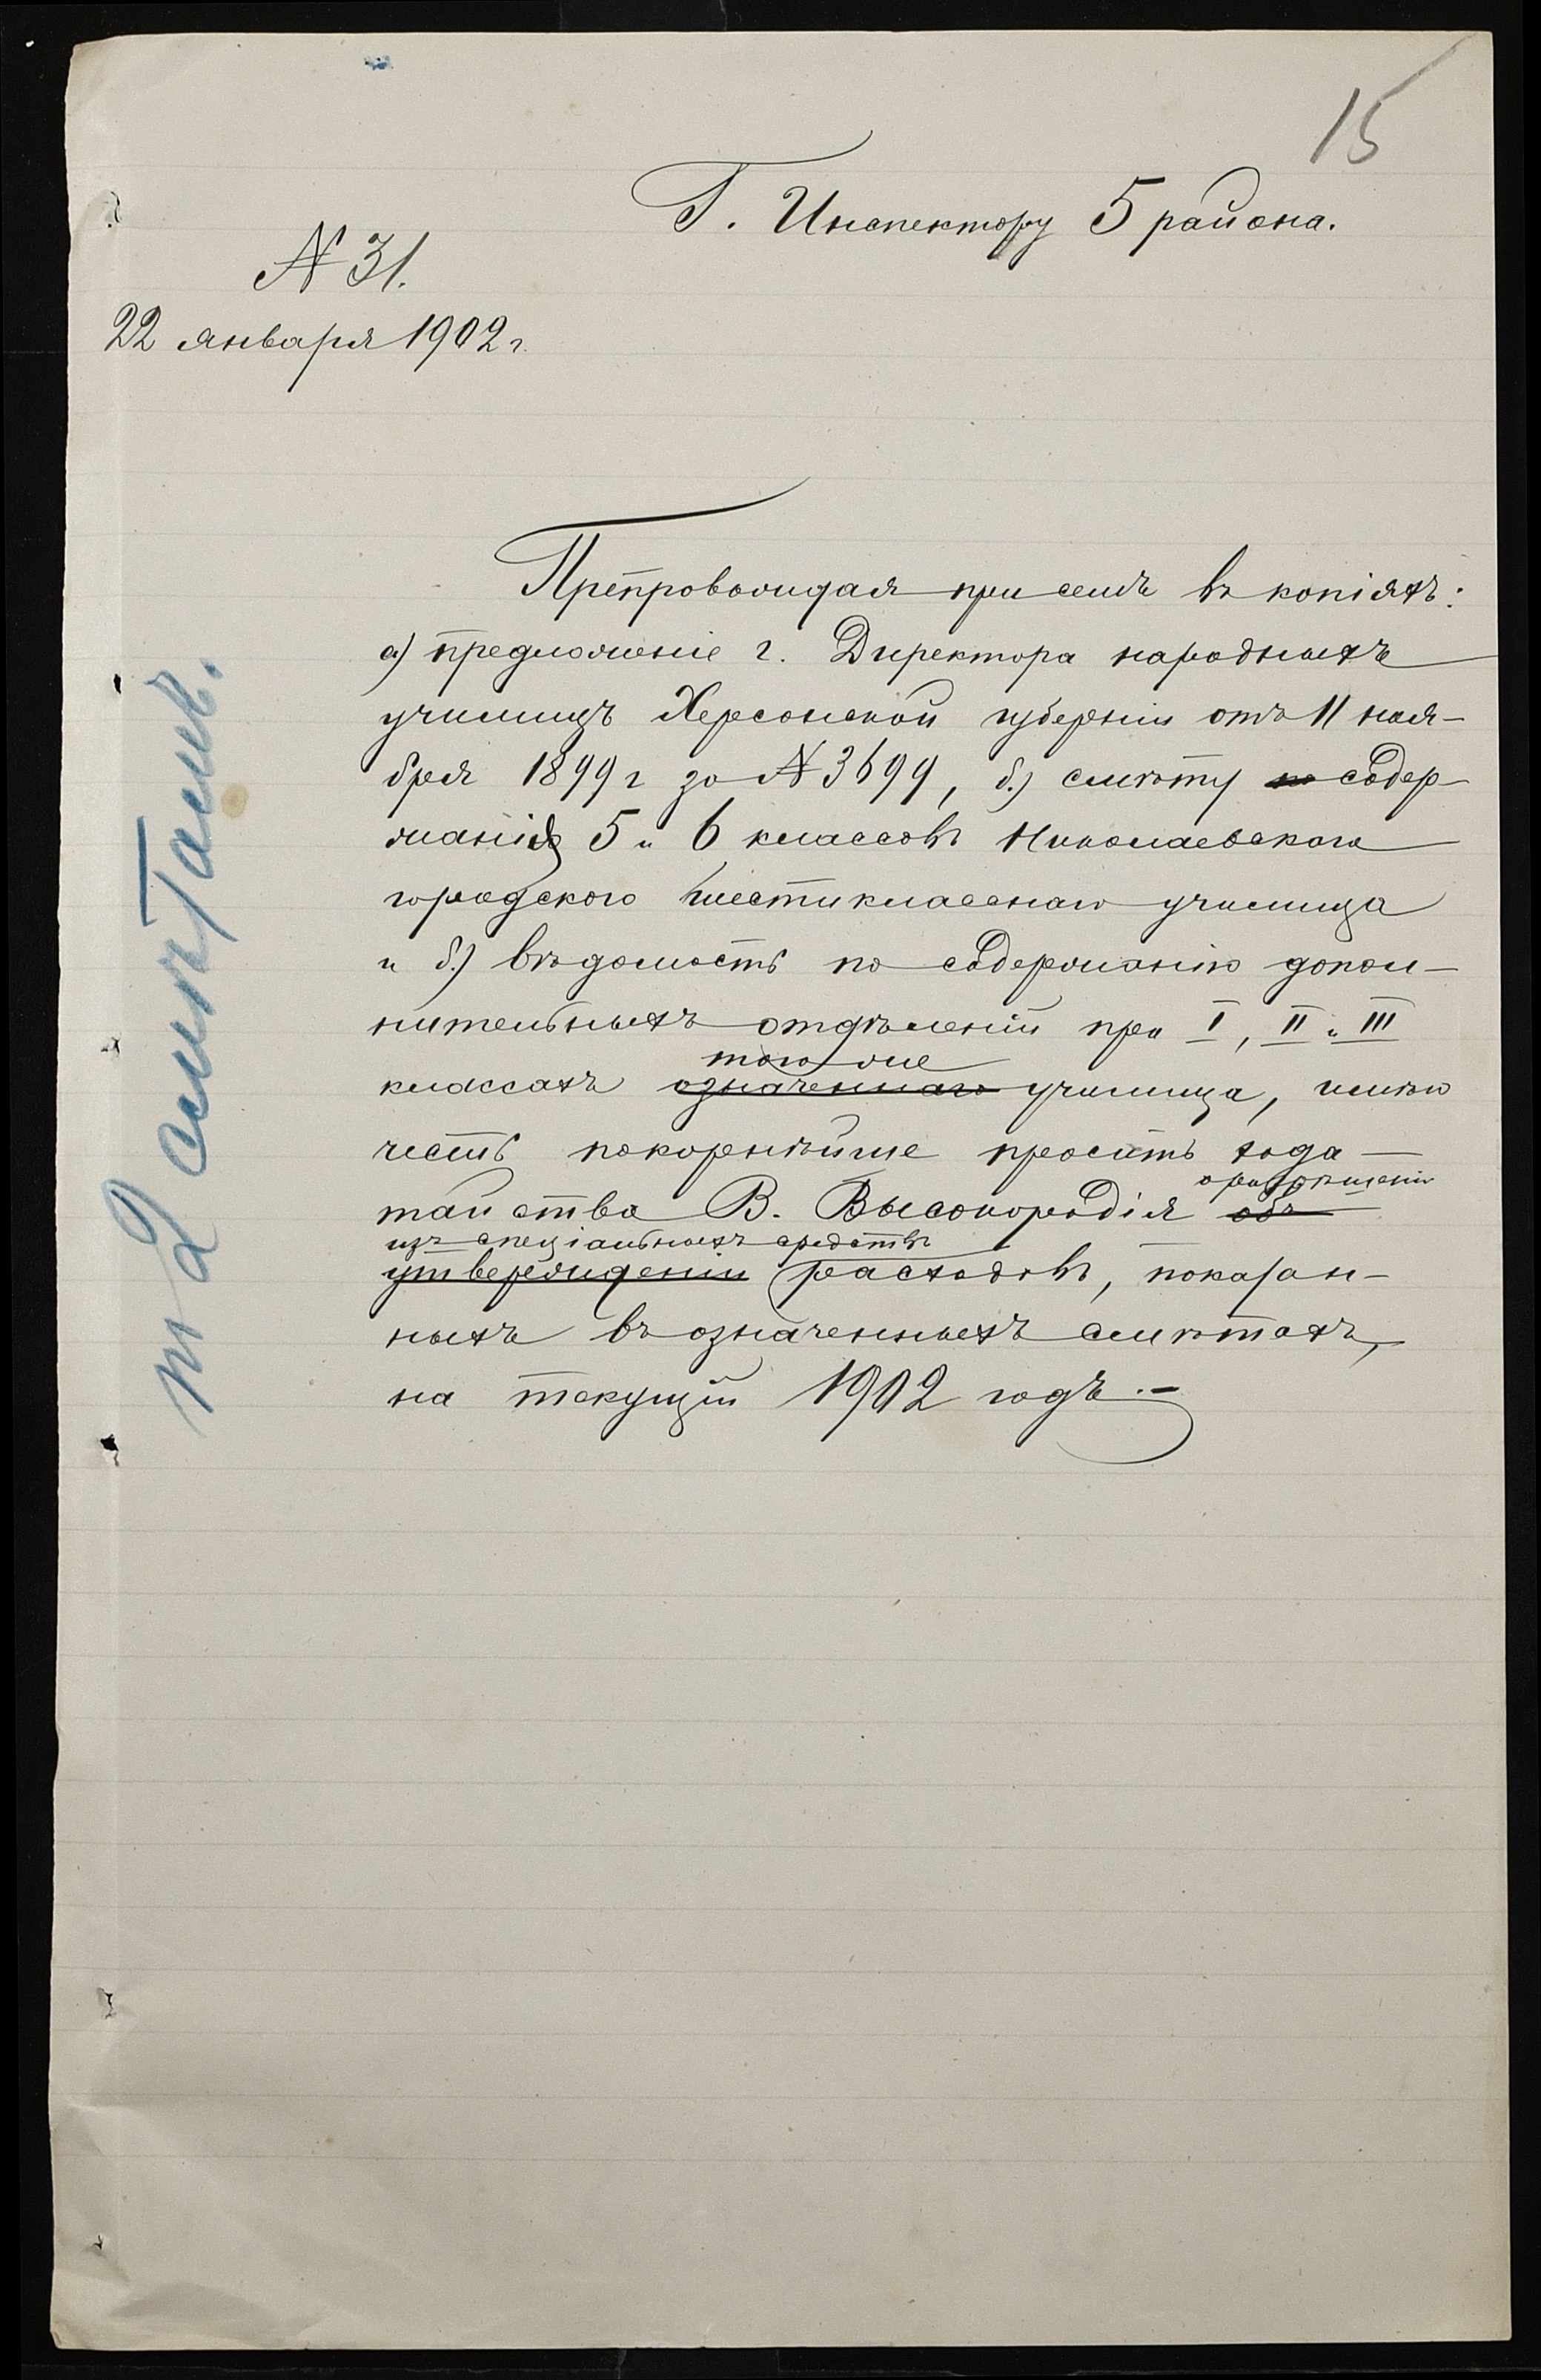 15
Г. Инспектору 5 района.
N 31.
22 января 1902 г.
Препровождая при семъ въ копіяхъ:
а) предложеніе г. Директора народныхъ
училищъ Херсонской губерніи отъ 11 ноя-
бря 1899 г за N 3699, б.) смѣту по содер-
жанія 5 и 6 классовъ Николаевскаго
городского шестикласснаго училища
и б.) вѣдомость по содержанію допол-
нительныхъ отдѣленій при I, II и III
того же
классахъ означеннаго училища, имѣю
честь покорнѣйше просить хода-
о разрѣшеніи
тайства В. Высокородія объ
изъ спеціальныхъ средствъ
утвержденіи расходовъ, показан-
ныхъ въ означенныхъ смѣтахъ,
на текущій 1902 годъ.-
2 смѣтамъ.